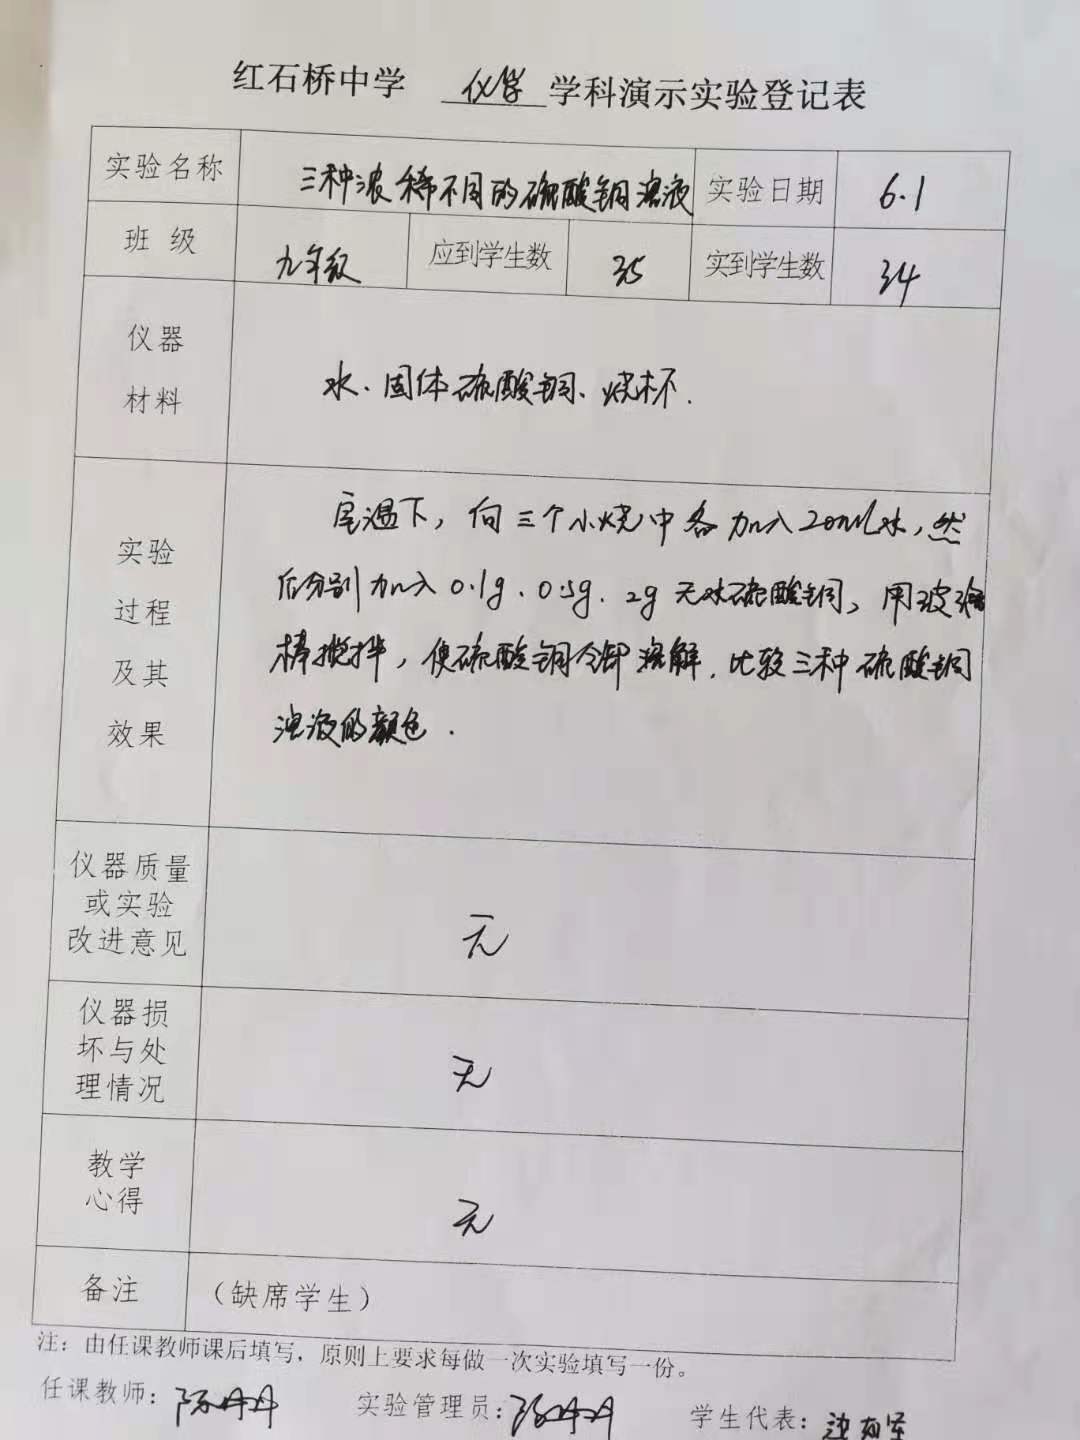 红石桥中学 化学 学科演示实验登记表
实验名称 三种浓稀不同的硫酸铜溶液 实验日期 6.1
班 级 九年级 应到学生数 35 实到学生数 34
仪器
材料
水、固体硫酸铜、烧杯.
实验
过程
及其
效果
室温下，向三个小烧中各加入20ml水，然
后分别加入0.1g、0.5g、2g无水硫酸铜，用玻璃
棒搅拌，使硫酸铜全部溶解.比较三种硫酸铜
溶液的颜色.
仪器质量
或实验
改进意见
无
仪器损
坏与处
理情况
无
教学
心得
无
备注 （缺席学生）
注：由任课教师课后填写，原则上要求每做一次实验填写一份。
任课教师：陈丹丹 实验管理员：陈丹丹 学生代表：